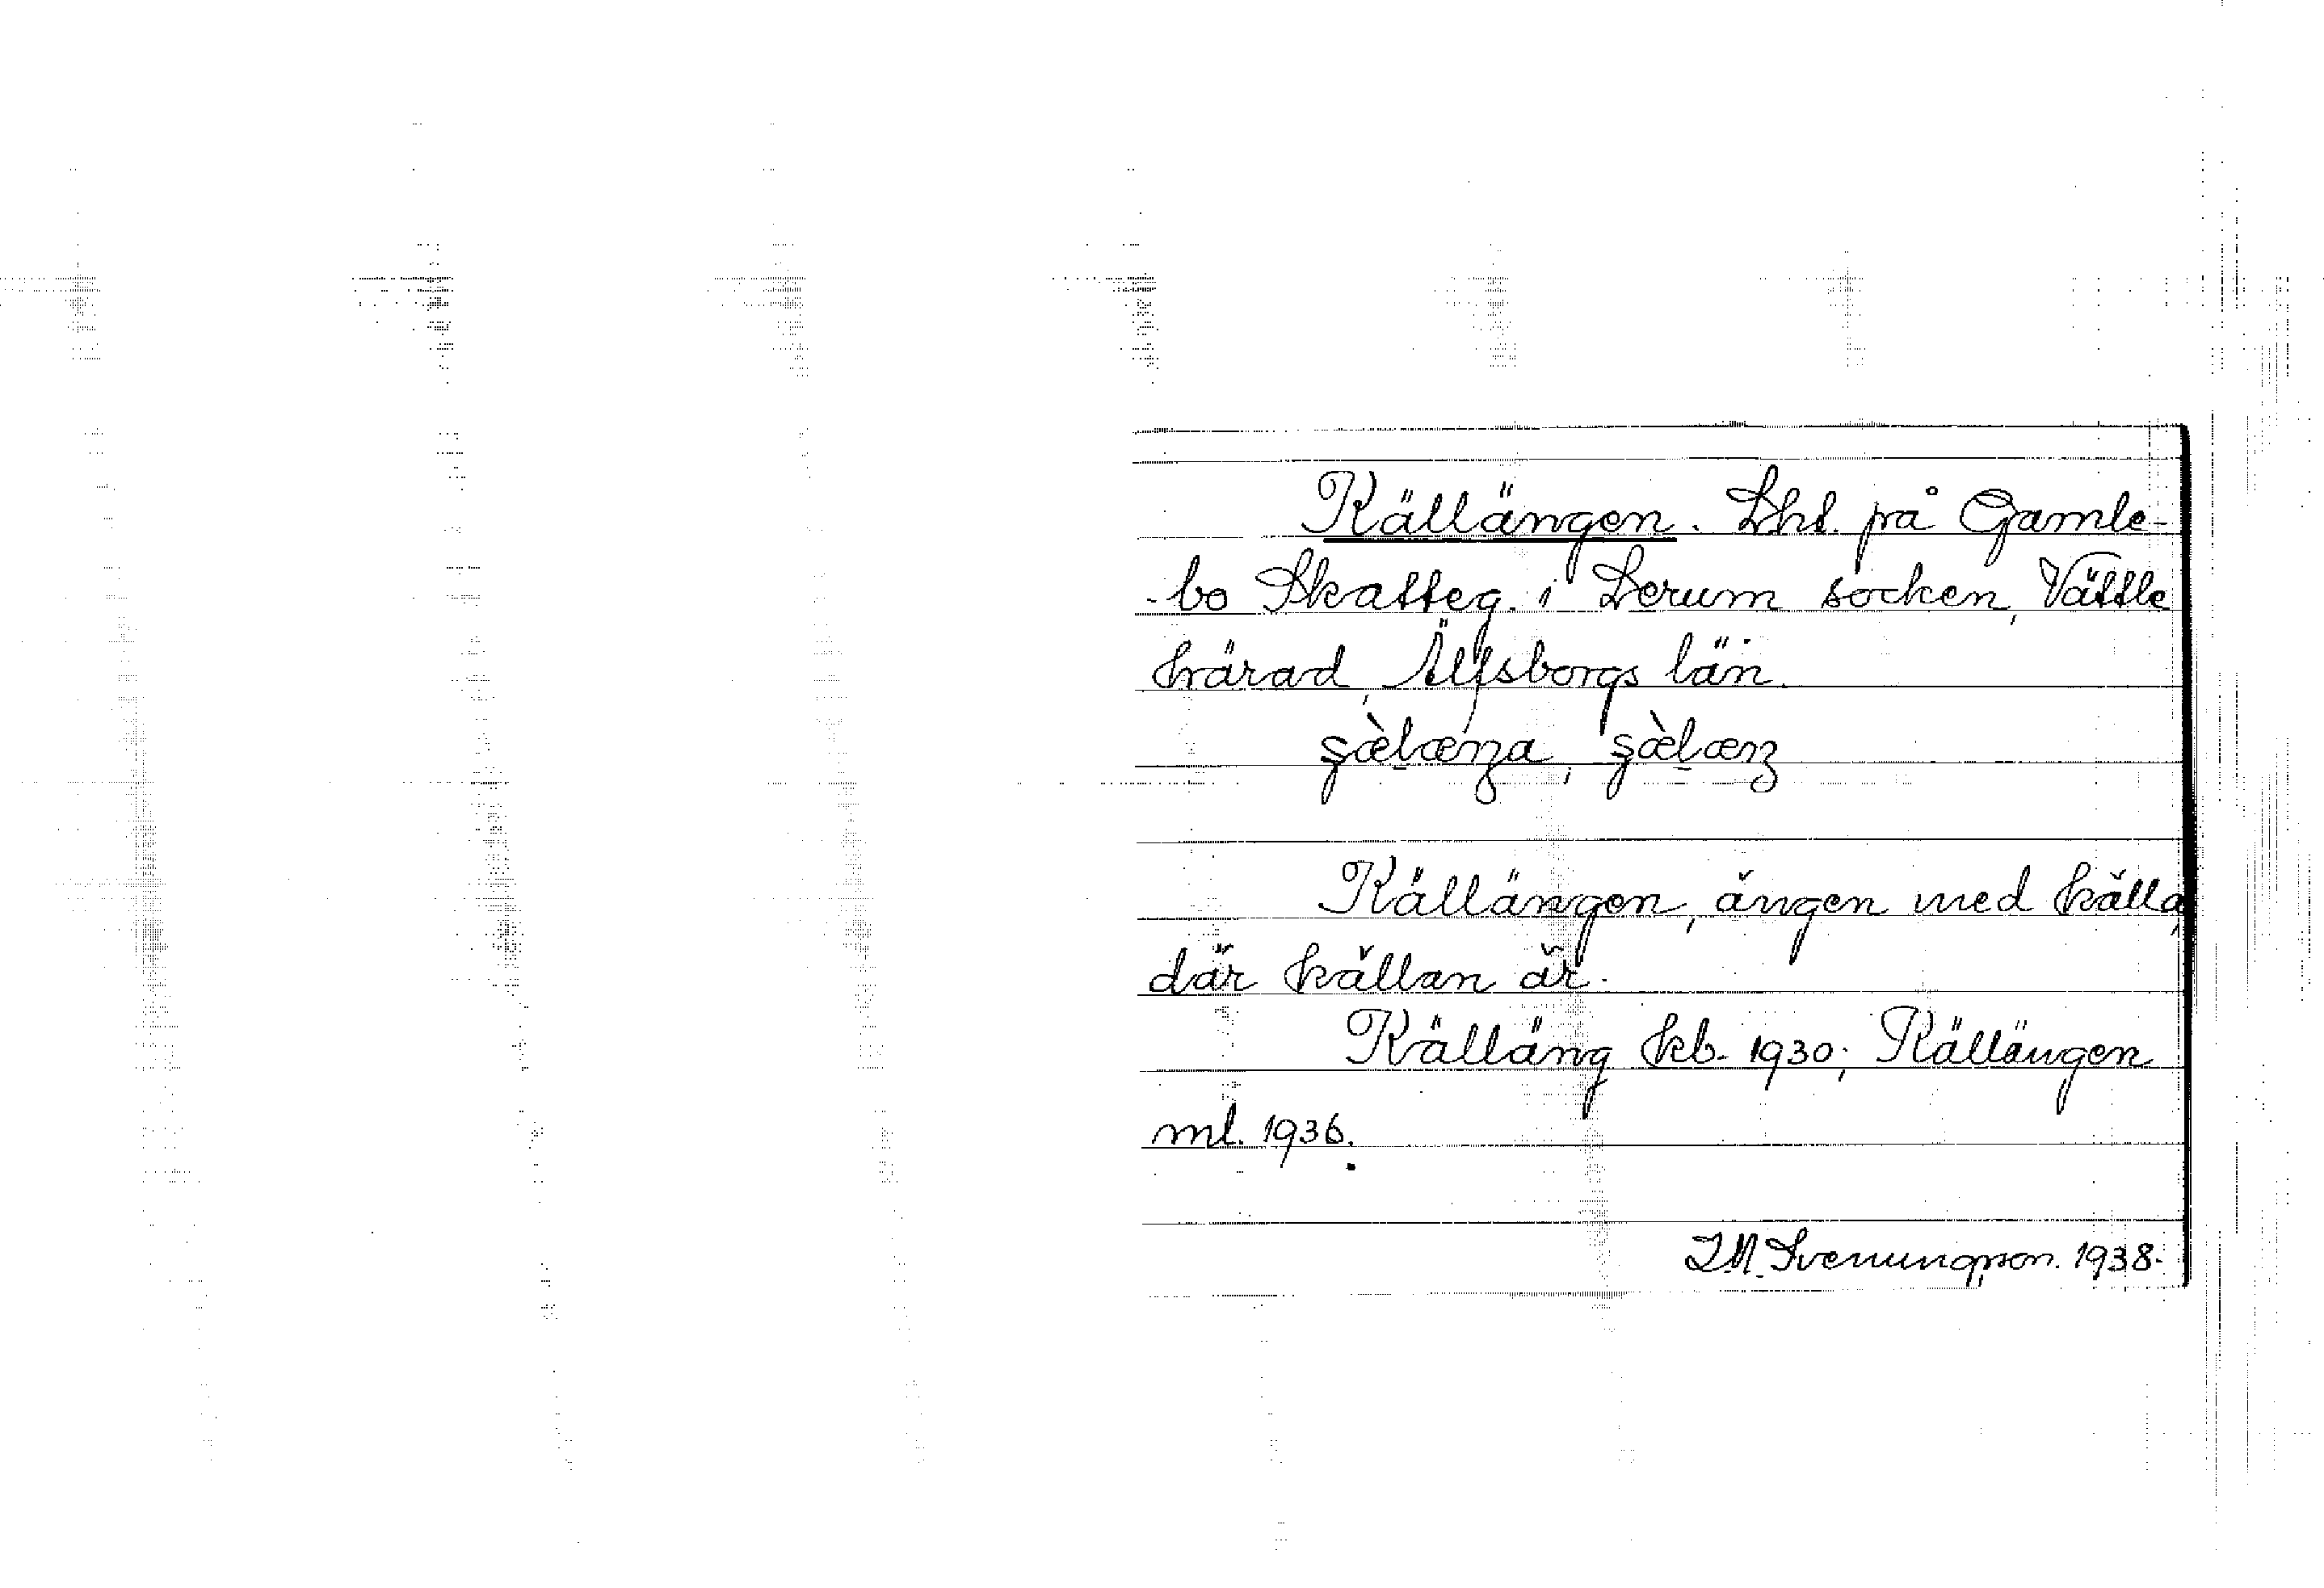 Källängen. Lht. på Gamle-
-bo Skatteg. i Lerum socken, Vättle
härad, Älfsborgs län.
Källängen, ängen med källa,
där källan är.
Källäng kb. 1930; Källängen
ml. 1936.
I M Svenungsson. 1938.